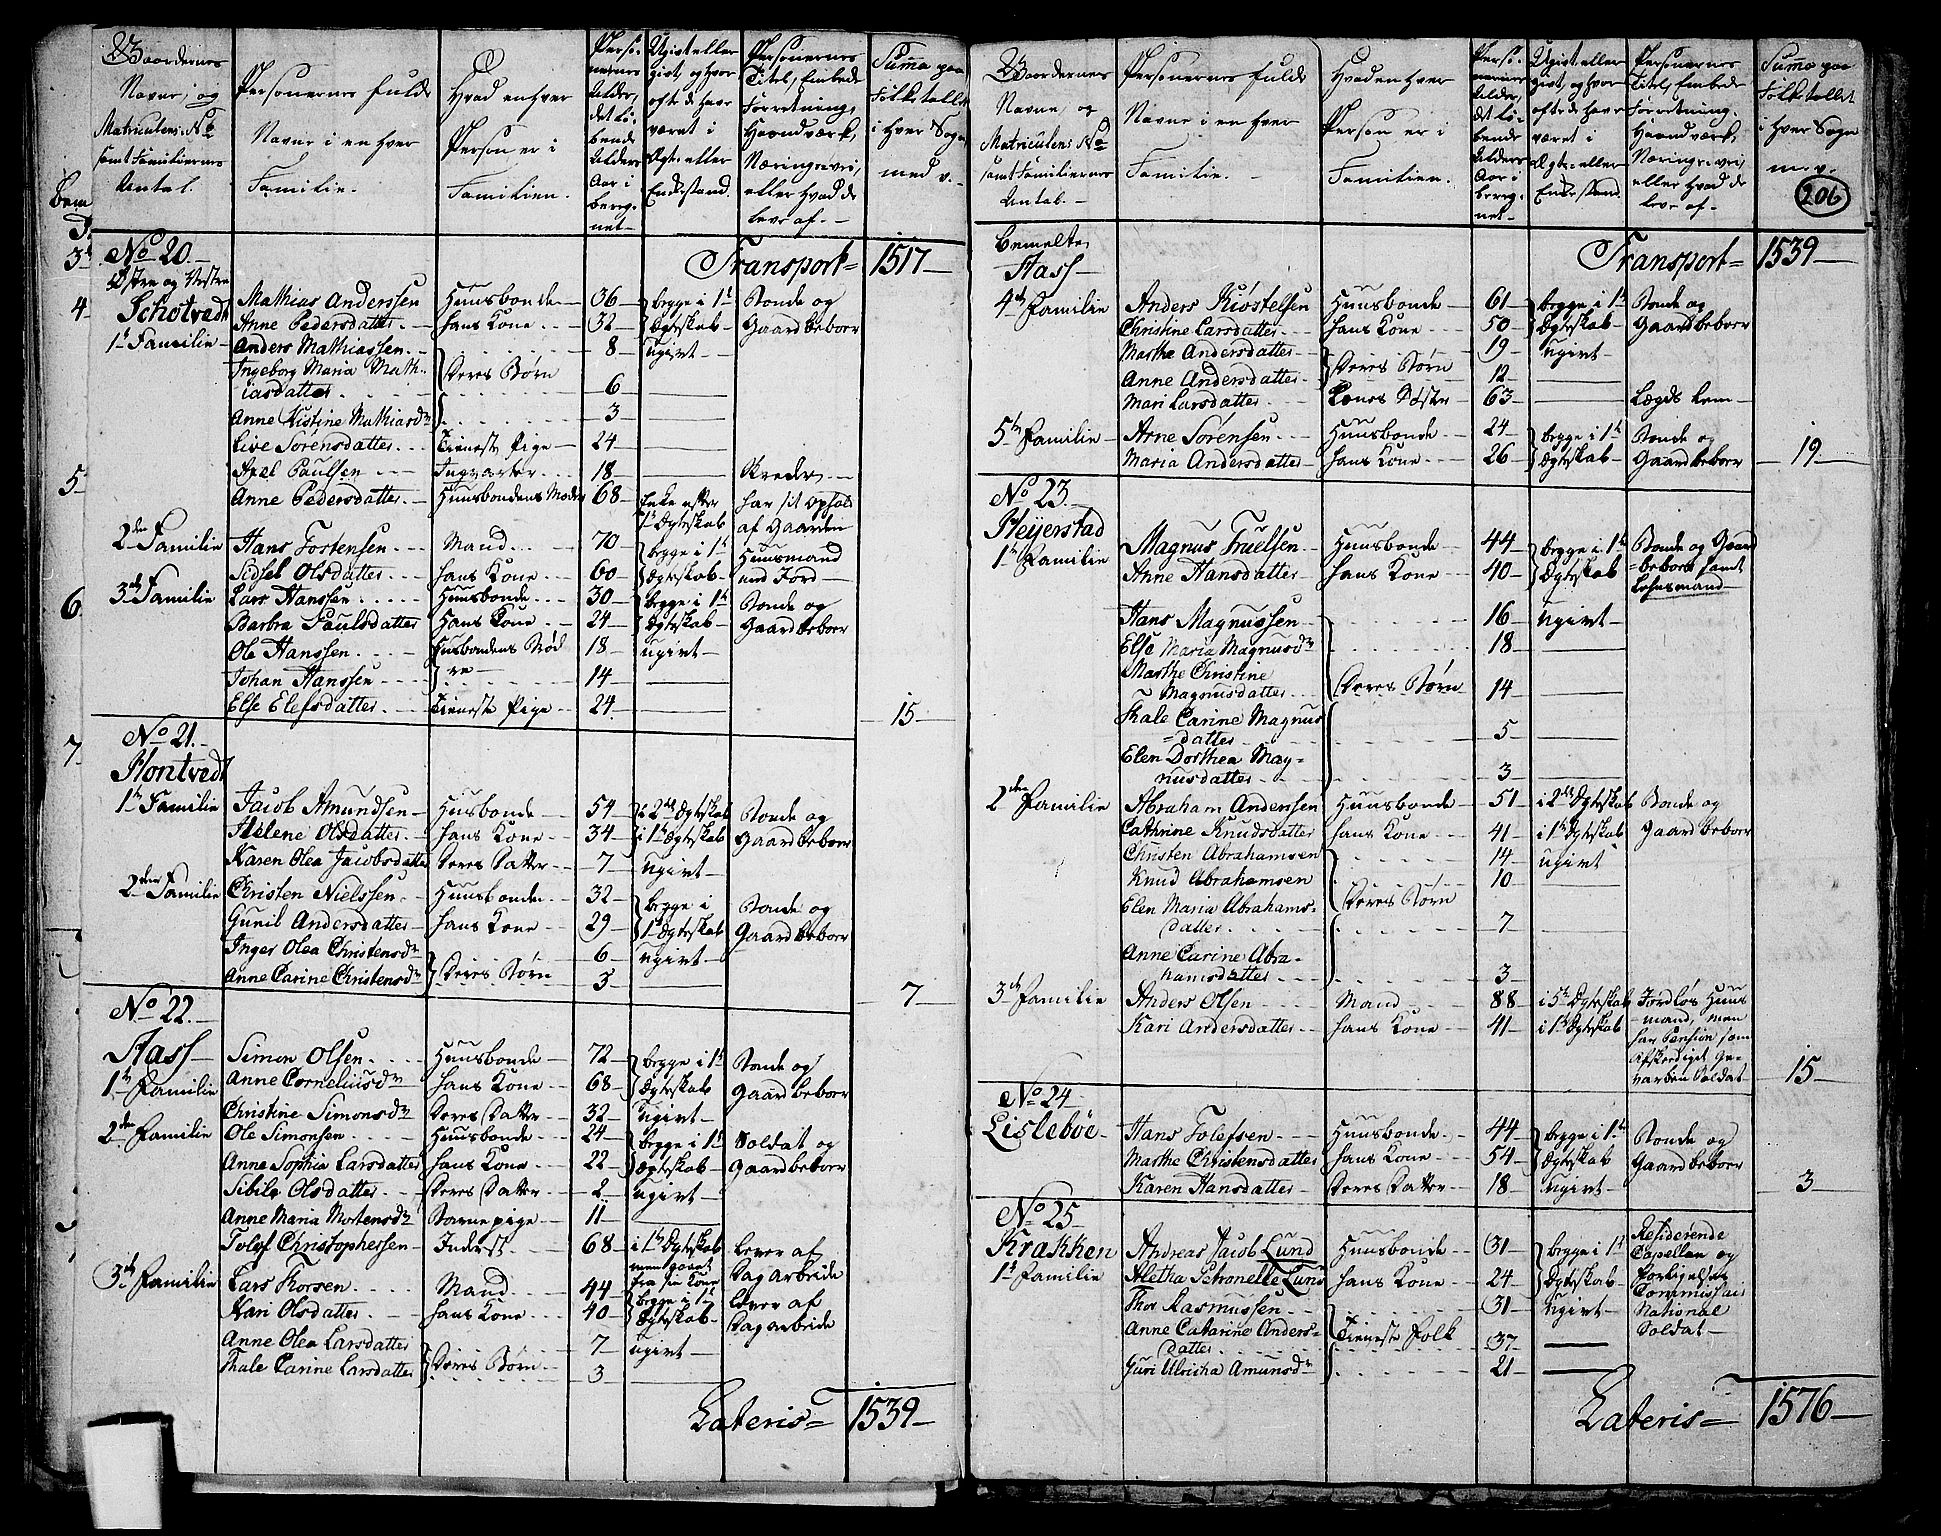 Gaardernes Navne, og Matriculens No samt Familiernes Antal.
Personernes fulde Navne i en hver Familie.
Hvad enhver Person er i Familien.
Personernes Alder, det løbende Alders Aar i beregnet
Ugivt eller givt, og hvor ofte de have været i Ægte- eller Enkestand.
Personernes Titel, Embede Forretning, Haandværk, Næringsvei, eller hvad de leve af.
Suma paa Folketallet i hver Sogn med v.
No 20. Transport= 1517
Østre og Vestre
Schotvedt
1t Familie
Mathias Anderssen Huusbonde 36 begge i 1t Ægteskab Bonde og Gaardbeboer
Anne Pedersdatter hans Kone 32
Anders Mathiassen 8 ugivt
Ingeborg Maria Mathiasdatter } Deres Børn 6
Anne Kistine Mathiasdr 3
Live Sørensdatter Tieneste Pige 24
Axel Paulsen 18 Skreder
Anne Pedersdatter Huusbondens Moder 68 Enke efter 1t Ægteskab har sit Ophold af Gaarden
2den Familie Hans Tostensen Mand 70 begge i 1t Ægteskab Huusmand med Jord
Sidsel Olsdatter hans Kone 60
3de Familie Lars Hanssen Huusbonde 30 begge i 1t Ægteskab Bonde og Gaardbeboer
Barbra Paulsdatter Hans Kone 24
Ole Hanssen Husbondens Brødre 18 ugivt
Johan Hanssen 14
Else Elefsdatter Tieneste Pige 24 15
No 21.
Hontvedt
1t Familie Jacob Amundsen Husbonde 54 i 2det Ægteskab Bonde og Gaardbeboer
Helene Olsdatter hans Kone 34 i 1t Ægteskab
Karen Olea Jacobsdatter Deres Datter 7 ugivt
2den Familie Christen Nielssen Huusbonde 32 begge i 1t Ægteskab Bonde og Gaardbeboer
Gunil Andersdatter hans Kone 29
Inger Olea Christensdr } Deres Børn 6 ugivt
Anne Carine Christensdr 3 7
No 22.
Hass
1t Familie Simon Olsen Huusbonde 72 begge i 1t Ægteskab Bonde og Gaardbeboer
Anne Corneliusdr hans Kone 68
Christine Simonsdr Deres Datter 32 ugivt
2den Familie Ole Simonsen Huusbonde 24 begge i 1t Ægteskab Soldat og Gaardbeboer
Anne Sophia Larsdatter hans Kone 22
Sibile Olsdatter Deres Datter 2 ugivt
Anne Maria Mortensdr Barnepige 11
Tolof Christophersen Inderst 68 i 1t Ægteskab fra sin Kone lever af Dagarbeide
3de Familie Lars Thorsen Mand 44 begge i 1t Ægteskab lever af Dagarbeide
Kari Olsdatter hans Kone 40
Anne Olea Larsdatter } Deres Børn 7 ugivt
Thale Carine Larsdatter 3
Lateris= 1539
3t
4
5
6
7
206
Gaardernes Navne, og Matriculens No samt Familiernes Antal.
Personernes fulde Navne i en hver Familie.
Hvad enhver Person er i Familien.
Personernes Alder, det løbende Alders Aar i beregnet
Ugivt eller givt, og hvor ofte de have været i Ægte- eller Enkestand.
Personernes Titel, Embede Forretning, Haandværk, Næringsvei, eller hvad de leve af.
Suma paa Folketallet i hver Sogn m. v.
bemelte Hass Transport= 1539
4de Familie Anders Kiøstelsen Huusbonde 61 begge i 1t Ægteskab Bonde og Gaardbeboer
Christine Larsdatter hans Kone 50
Marthe Andersdatter } Deres Børn 19 ugivt
Anne Andersdatter 12
Mari Larsdatter Kones Søster 63 Lægds Lem
5te Familie Arne Sørensen Huusbonde 24 begge i 1t Ægteskab Bonde og Gaardbeboer 19
Maria Andersdatter hans Kone 26
No 23.
Heyerstad
1t Familie Magnus Truelsen Huusbonde 44 begge i 1t Ægteskab Bonde og Gaardbeboer samt Lehnsmand
Anne Hansdatter hans Kone 40
Hans Magnussen 16 ugivt
Else Maria Magnusdr 18
Marthe Christine Magnusdatter } Deres Børn 14
Thale Carine Magnusdatter 5
Elen Dorthea Magnusdatter 3
2den Familie Abraham Andersen Huusbonde 51 i 2det Ægteskab Bonde og Gaardbeboer
Cathrine Knudsdatter hans Kone 41 i 1t Ægteskab
Christen Abrahamsen 14 ugivt
Knud Abrahamsen } Deres Børn 10
Elen Maria Abrahamsdatter 7
Anne Carine Abrahamsdatter 3
3de Familie Anders Olsen Mand 88 i 5te Ægteskab Jordløs Huusmand, men har Pension som afskediget Gevorben Soldat
Kari Andersdatter hans Kone 41 i 1t Ægteskab 15
No 24
Lislebøe Hans Tolefsen Huusbonde 44 begge i 1t Ægteskab Bonde og Gaardbeboer
Marthe Christensdatter hans Kone 54
Karen Hansdatter Deres Datter 18 ugivt 3
No 25
Krakken
1t Familie Andreas Jacob Lund Huusbonde 31 begge i 1t Ægteskab Residerende Capellan og Forligelses Commissair
Aletha Petronelle Lund hans Kone 24
Thor Rasmussen } Tieneste Folk 31 ugivt National Soldat
Anne Catarine Andersdatter 37
Guri Ulricha Amunsdr 21
Lateris= 1576